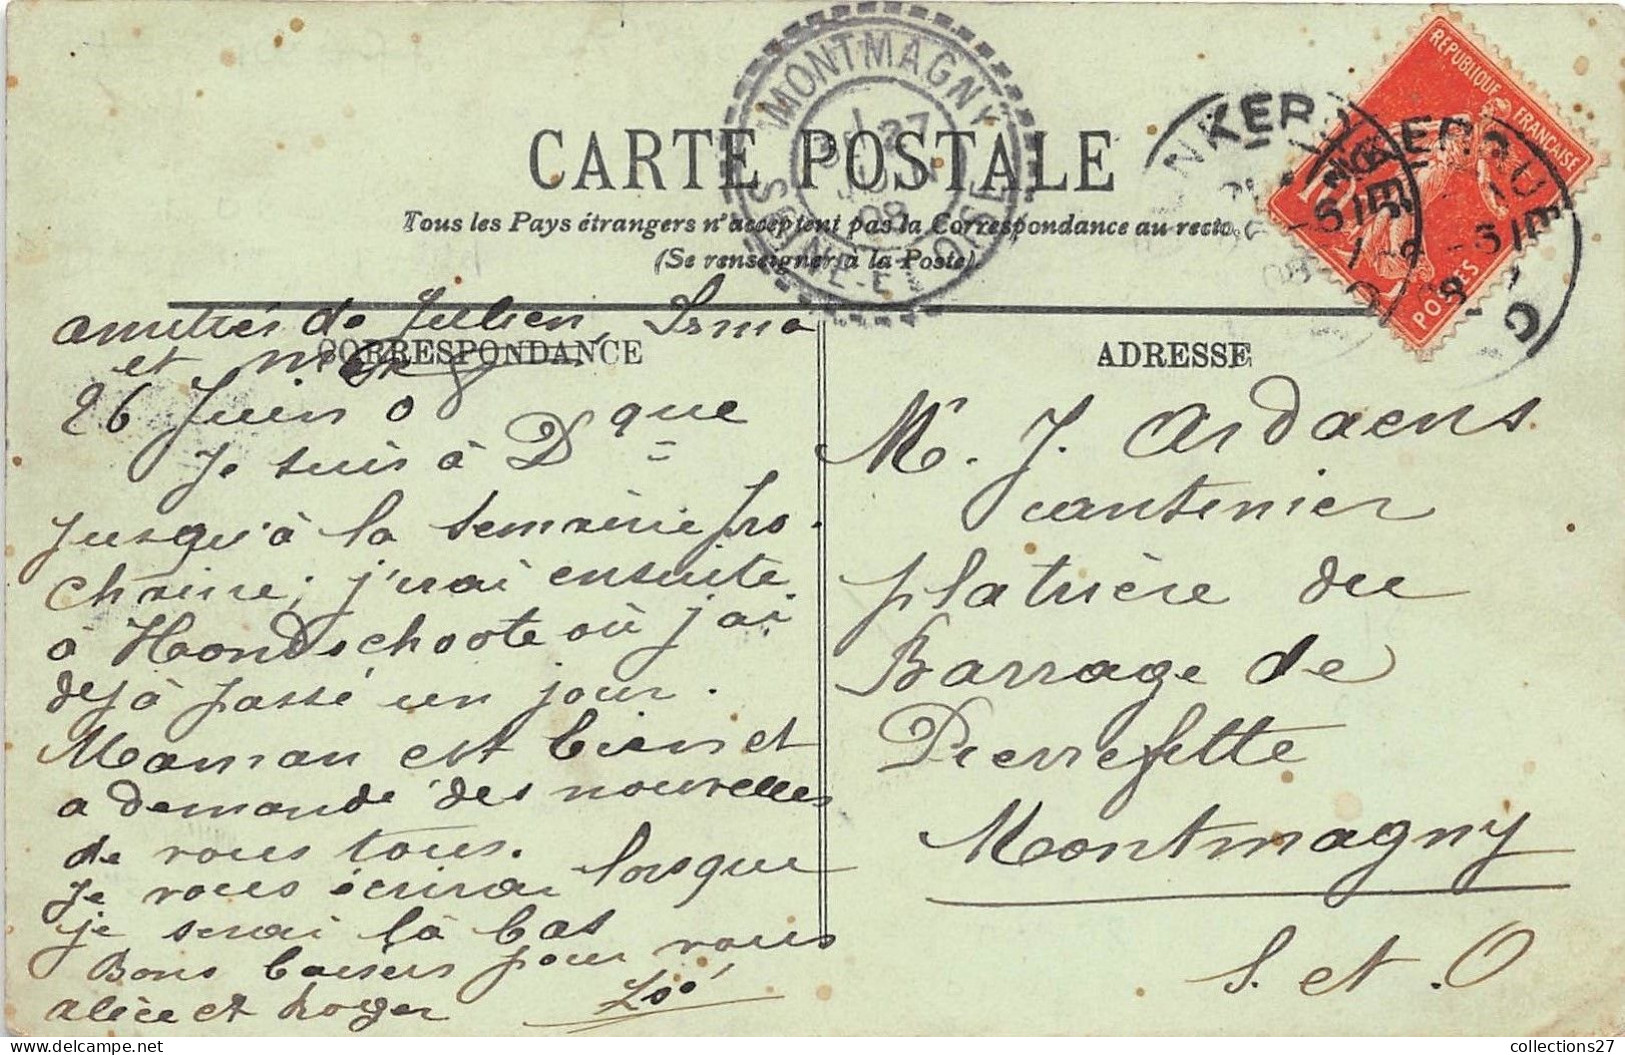 CARTE POSTALE
Tous les Pays étrangers n'acceptent pas la Correspondance au recto.
(Se renseigner à la Poste)
MONTMAGNY
27
JUIN
08
SEINE-ET-OISE
DUNKERQUE
REPUBLIQUE FRANÇAISE
10
POSTES
CORRESPONDANCE
amitiés de Julien, Irma
et
26 Juin 08
Je suis à Dque
jusqu'à la semaine pro-
chaine; j'irai ensuite
à Hondschoote où j'ai
dejà passé un jour.
Maman est bien et
a demandé des nouvelles
de vous tous.
Je vous écrirai lorsque
je serai là bas
Bons baisers pour vous
alice et Roger
Léo
ADRESSE
Mr. J. Ardaens
cantinier
platrière du
Barrage de
Pierrefitte
Montmagny
S. et. O
collections27